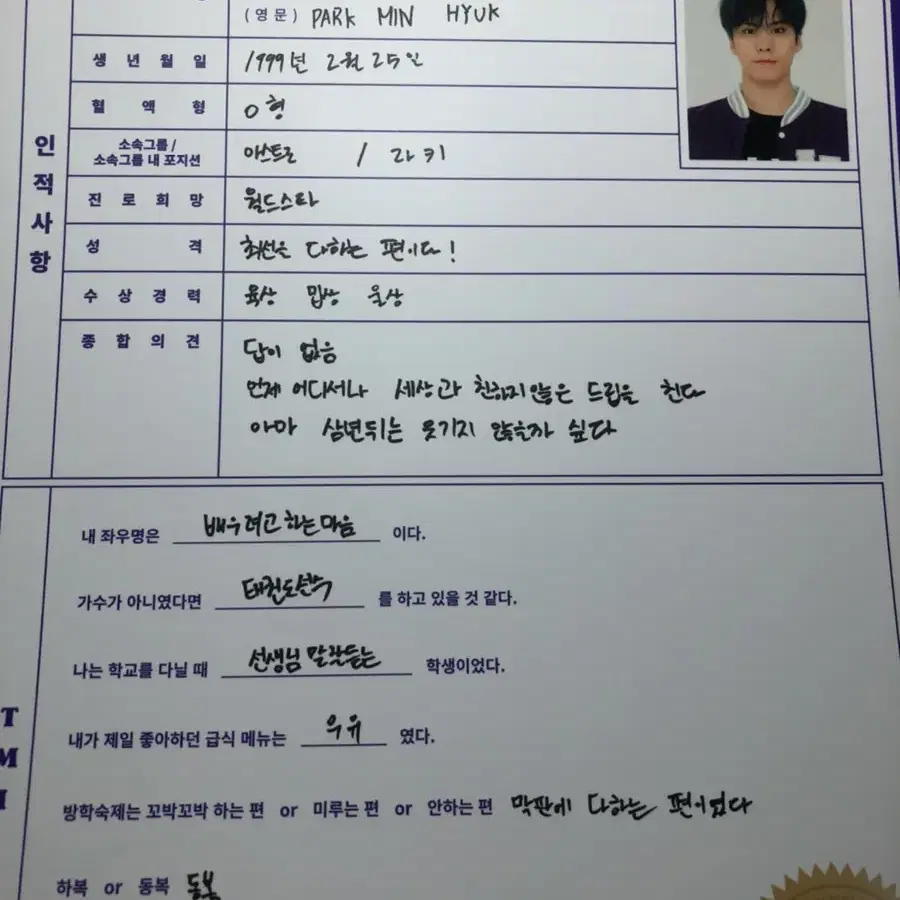 (영문) PARK MIN HYUK
생년월일 1999년 2월 25일
혈액형 O형
소속그룹 /
소속그룹 내 포지션 아스트로 / 라키
진로희망 월드스타
성격 최선을 다하는 편이다!
수상경력 육상 밉상 울상
종합의견 답이 없음
언제 어디서나 세상과 친하지않은 드립을 친다
아마 삼년뒤는 웃기지 않을까 싶다
인적사항
내 좌우명은 배우려고 하는 마음 이다.
가수가 아니였다면 태권도선수 를 하고 있을 것 같다.
나는 학교를 다닐 때 선생님 말잘듣는 학생이었다.
내가 제일 좋아하던 급식 메뉴는 우유 였다.
방학숙제는 꼬박꼬박 하는 편 or 미루는 편 or 안하는 편 막판에 다하는 편이었다
하복 or 동복 동복
TMI